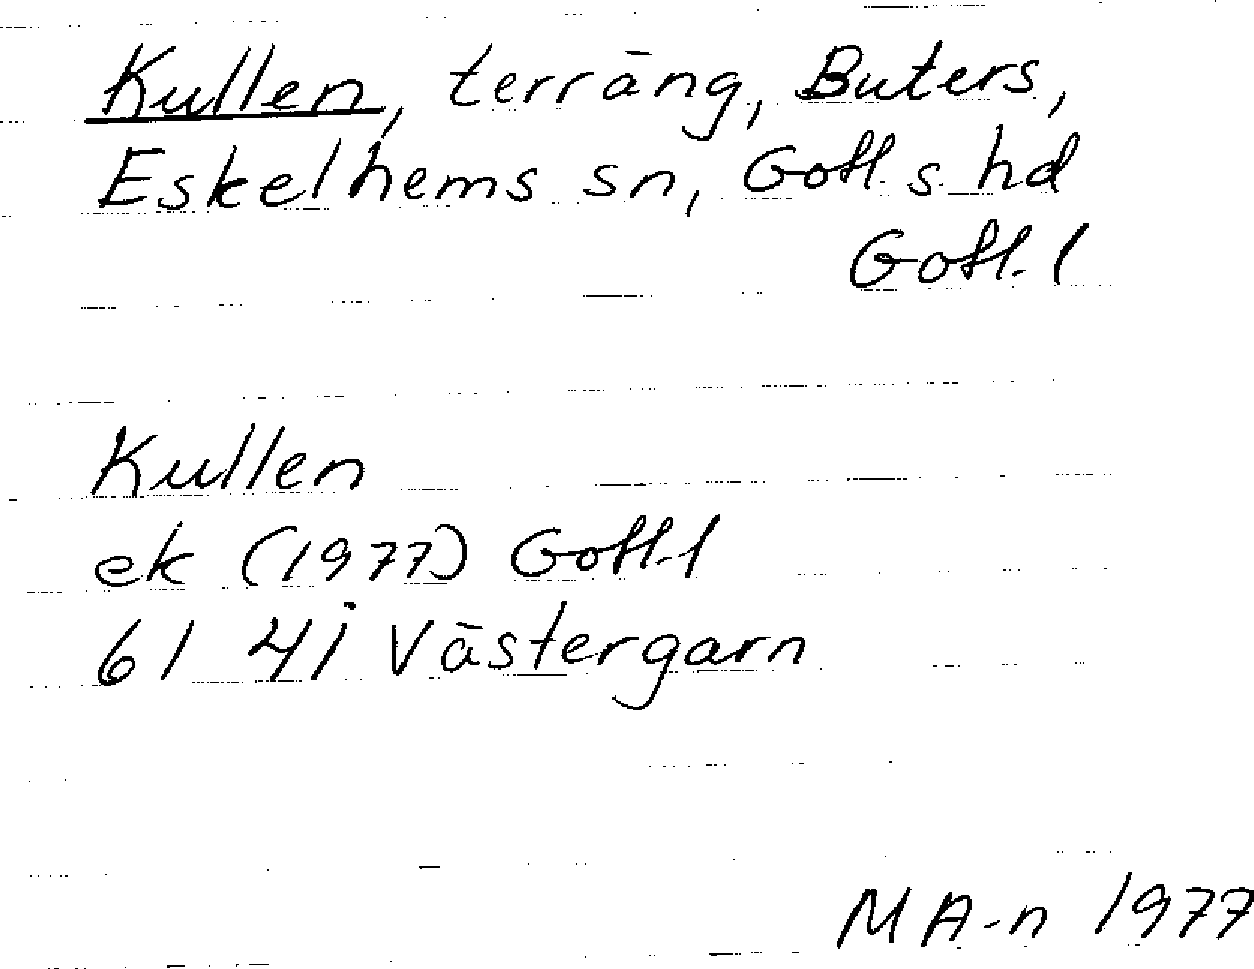 Kullen, terräng, Buters,
Eskelhems sn, Gotl. s. hd
Gotl. l
Kullen
ek (1977) Gotl. l
61 4i Västergarn
MA-n 1977